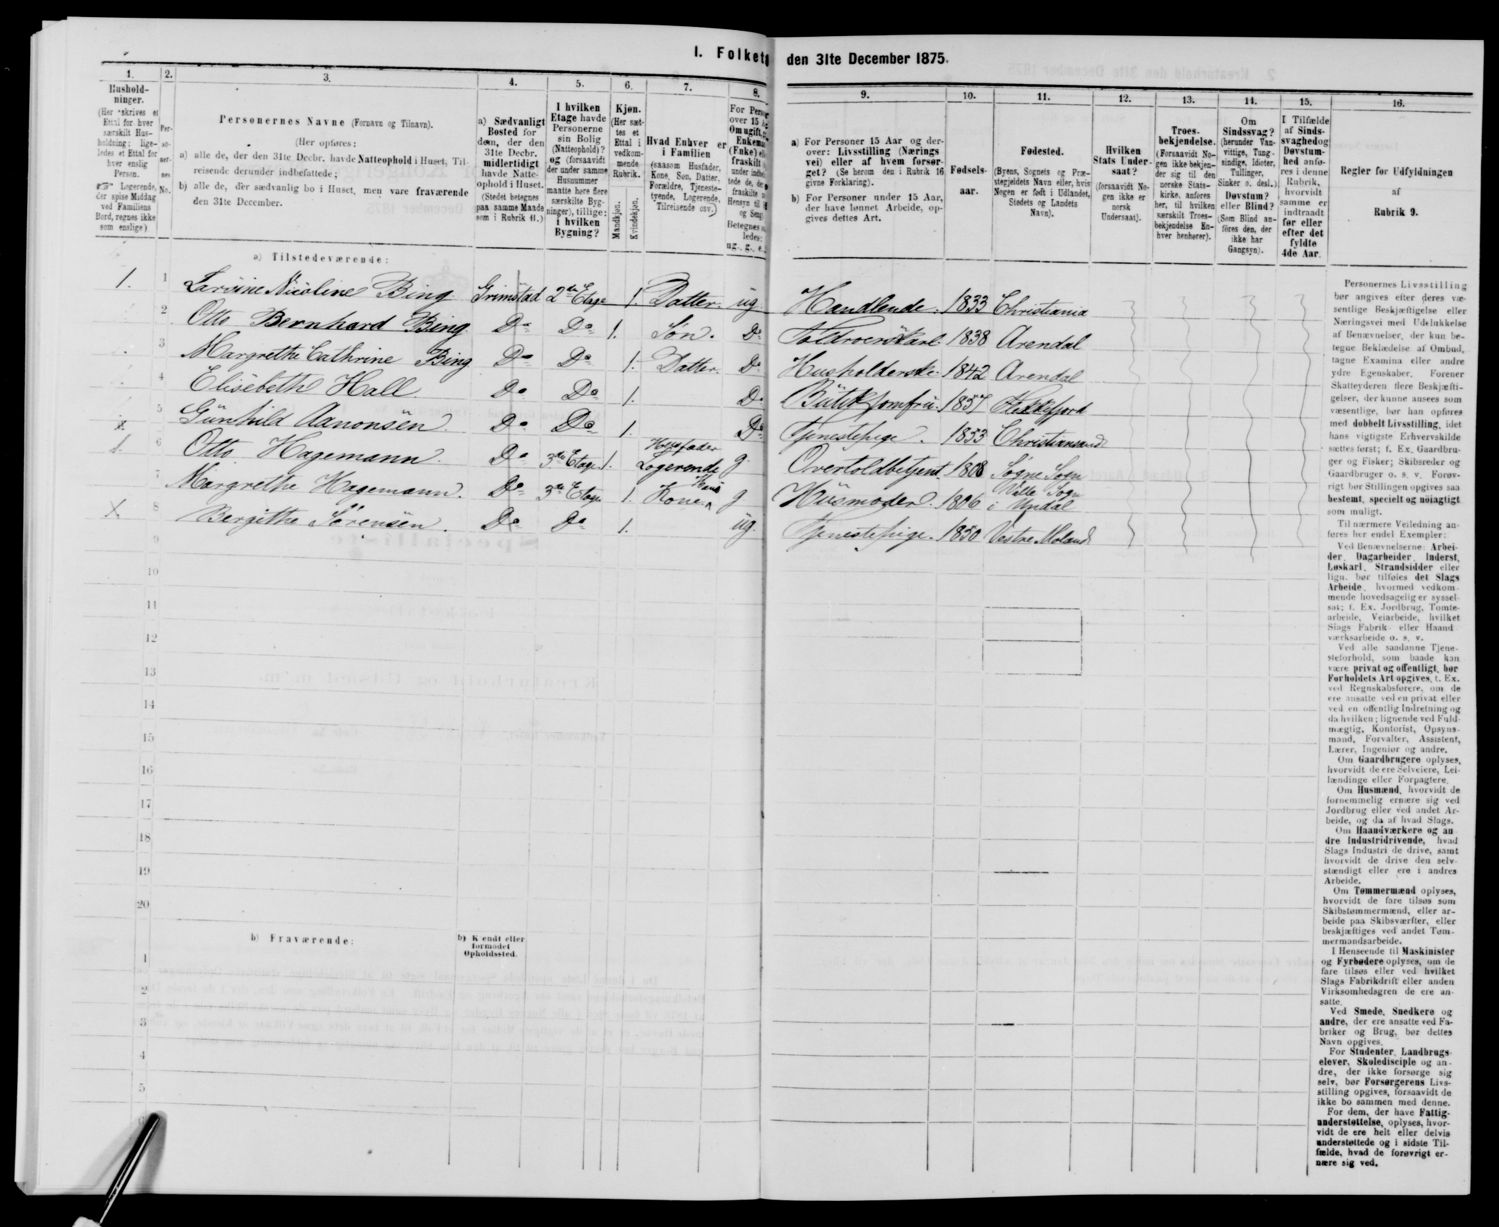 I. Folket den 31te December 1875.
1.
Hushold-
ninger.
(Her skrives et
Ettal for hver
særskilt Hus-
holdning; lige-
ledes et Ettal for
hver enslig
Person.
Logerende,
der spise Middag
ved Familiens
Bord, regnes ikke
som enslige)
2.
Per-
so-
ner-
nes
No.
3.
Personernes Navne (Fornavn og Tilnavn).
(Her opføres:
a) alle de, der den 31te Decbr. havde Natteophold i Huset, Til-
reisende derunder indbefattede;
b) alle de, der sædvanlig bo i Huset, men vare fraværende
den 31te December.
4.
a) Sædvanligt
Bosted for
dem, der den
31te Decbr.
midlertidigt
havde Natte-
ophold i Huset.
(Stedet betegnes
paa samme Maade
som i Rubrik 11.)
5.
I hvilken
Etage havde
Personerne
sin Bolig
(Natteophold)?
og (forsaavidt
der under samme
Husnummer
maatte høre flere
særskilte Byg-
ninger), tillige:
i hvilken
Bygning?
6.
Kjøn.
(Her sæt-
tes et
Ettal i
vedkom-
mende
Rubrik.
Mandkjøn.
Kvindekjøn.
7.
Hvad Enhver er
i Familien
(saasom Husfader,
Kone, Søn, Datter,
Forældre, Tjeneste-
tyende, Logerende,
Tilreisende osv.)
8.
For Pers
over 15
Om ugift,
Enkema
(Enke)
fraskilt
9.
a) For Personer 15 Aar og der-
over: Livsstilling (Nærings
vei) eller af hvem forsør-
get? (Se herom den i Rubrik 16
givne Forklaring).
b) For Personer under 15 Aar,
der have lønnet Arbeide, op-
gives dettes Art.
10.
Fødsels-
aar.
11.
Fødested.
(Byens, Sognets og Præ-
stegjeldets Navn eller, hvis
Nogen er født i Udlandet,
Stedets og Landets
Navn).
12.
Hvilken
Stats Under-
saat?
(forsaavidt No-
gen ikke er
norsk
Undersaat).
13.
Troes-
bekjendelse.
(Forsaavidt No-
gen ikke bekjen-
der sig til den
norske Stats-
kirke, anføres
her, til hvilken
særskilt Troes-
bekjendelse En-
hver henhører).
14.
Om
Sindssvag?
(herunder Van-
vittige, Tung-
sindige, Idioter,
Tullinger,
Sinker o. desl.)
Døvstum?
eller Blind?
(Som Blind an-
føres den, der
ikke har
Gangsyn).
15.
I Tilfælde
af Sinds-
svaghed og
Døvstum-
hed anfø-
res i denne
Rubrik,
hvorvidt
samme er
indtraadt
før eller
efter det
fyldte
4de Aar.
16.
Regler for Udfyldningen
af
Rubrik 9.
a) Tilstedeværende:
1. 1 Larsine Nicoline Bing Grimstad 2den Etage 1. Datter ug. Handlende. 1833 Christiania
2 Otto Bernhard Bing Do Do 1. Søn. Do 1838 Arendal
3 Margrethe Cathrine Bing Do Do 1. Datter. Do Husholderske 1842 Arendal
4 Elisebeth Hall Do Do 1. Do Butikjomfru 1857 Flekkefjord
x 5 Gunhild Aanonsen Do Do 1. Do Tjenestepige. 1853 Christiansand
1. 6 Otto Hagemann. Do 3die Etage 1. Husfader Logerende g. Overtoldbetjent 1808 Søgne Sogn
Margrethe Hagemann. Do 3die Etage 1. Kone g Husmoder. 1806 i Undal
X 8 Bergithe Sørensen. Do Do 1. ug. Tjenestepige. 1850 Vestre Moland
9
10
11
12
13
14
15
16
17
18
19
20
b) Fraværende:
b) Kjendt eller
formodet
Opholdssted.
1
2
3
4
5
6
Personernes Livsstilling
bør angives efter deres væ-
sentlige Beskjæftigelse eller
Næringsvei med Udelukkelse
af Benævnelser, der kun be-
tegne Beklædelse af Ombud,
tagne Examina eller andre
ydre Egenskaber. Forener
Skatteyderen flere Beskjæfti-
gelser, der kunne ansees som
væsentlige, bør han opføres
med dobbelt Livsstilling, idet
hans vigtigste Erhvervskilde
sættes først; f. Ex. Gaardbru-
ger og Fisker; Skibsreder og
Gaardbruger o. s. v. Forøv-
rigt bør Stillingen opgives saa
bestemt, specielt og nøiagtigt
som muligt.
Til nærmere Veiledning an-
føres her endel Exempler:
Ved Benævnelserne: Arbei-
der, Dagarbeider, Inderst,
Løskarl, Strandsidder eller
lign. bør tilføies det Slags
Arbeide, hvormed vedkom-
mende hovedsagelig er syssel-
sat; f. Ex. Jordbrug, Tomte-
arbeide, Veiarbeide, hvilket
Slags Fabrik- eller Haand-
værksarbeide o. s. v.
Ved alle saadanne Tjene-
steforhold, som baade kan
være privat og offentligt, bør
Forholdets Art opgives, f. Ex.
ved Regnskabsførere, om de
ere ansatte ved en privat eller
ved en offentlig Indretning og
da hvilken; lignende ved Fuld-
mægtig, Kontorist, Opsyns-
mand, Forvalter, Assistent,
Lærer, Ingeniør og andre.
Om Gaardbrugere oplyses,
hvorvidt de ere Selveiere, Lei-
lændinge eller Forpagtere.
Om Husmænd, hvorvidt de
fornemmelig ernære sig ved
Jordbrug eller ved andet Ar-
beide, og da af hvad Slags.
Om Haandværkere og an
dre Industridrivende, hvad
Slags Industri de drive, samt
hvorvidt de drive den selv-
stændigt eller ere i andres
Arbeide.
Om Tømmermænd oplyses,
hvorvidt de fare tilsøs som
Skibstømmermænd, eller ar-
beide paa Skibsværfter, eller
beskjæftiges ved andet Tøm-
mermandsarbeide.
I Henseende til Maskinister
og Fyrbødere oplyses, om de
fare tilsøs eller ved hvilket
Slags Fabrikdrift eller anden
Virksomhedsgren de ere an-
satte.
Ved Smede, Snedkere og
andre, der ere ansatte ved Fa-
briker og Brug, bør dettes
Navn opgives.
For Studenter, Landbrugs-
elever, Skoledisciple og an-
dre, der ikke forsørge sig
selv, bør Forsørgerens Livs-
stilling opgives, forsaavidt de
ikke bo sammen med denne.
For dem, der have Fattig-
understøttelse, oplyses, hvor-
vidt de ere helt eller delvis
understøttede og i sidste Til-
fælde, hvad de forøvrigt er-
nære sig ved.